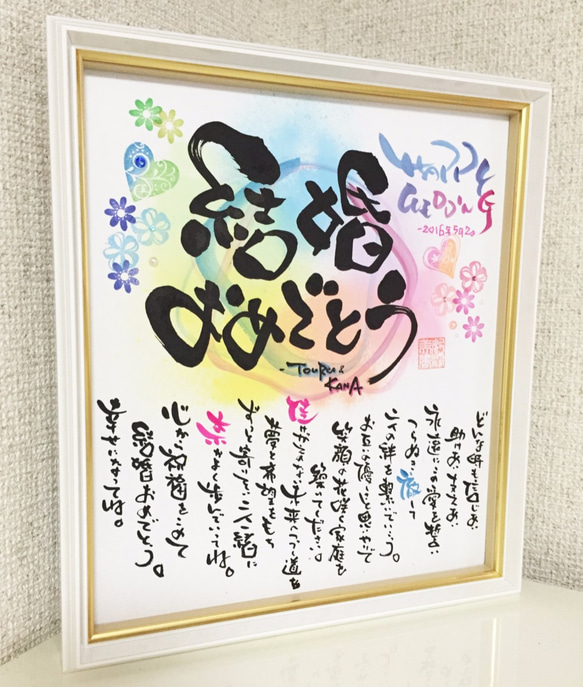 結婚
おめでとう
HAPPY
WEDDING
-2016年5月2日
-TOURU &
KANA
どんな時も信じあい
助けあい支えあい
永遠にこの愛を誓い
つらぬき徹して
二人の絆を繋いでいこう。
お互い優しさと思いやりで
笑顔の花咲く家庭を
築いてください。
未来へつづく道を
夢と希望をもち
ずっと寄りそい二人一緒に
奈かよく歩んでいってね。
心から祝福をこめて
結婚おめでとう。
幸せになってね。